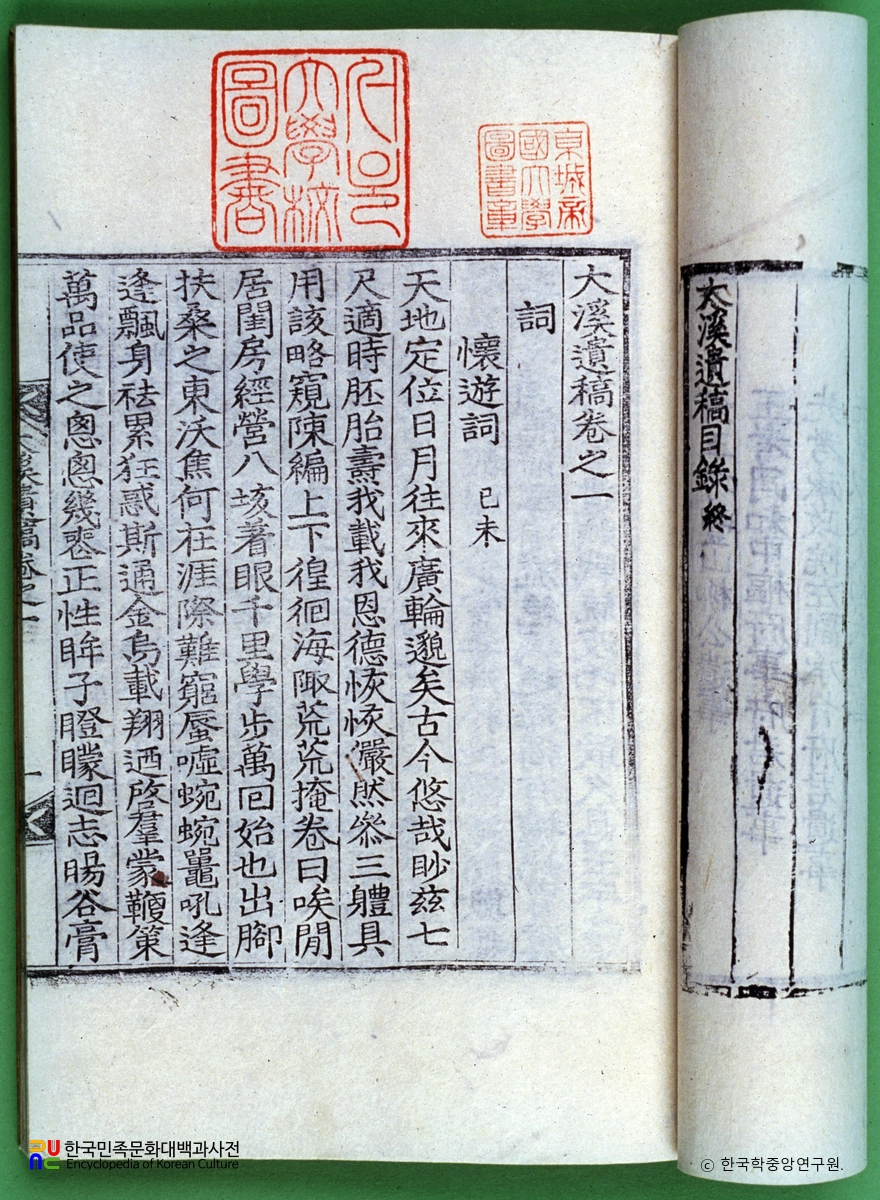 大溪遺稿目錄終
大溪遺稿卷之一
詞
懷遊詞 己未
天地定位日月往來廣輪邈矣古今悠哉眇茲七
尺適時胚胎壽我載我恩德恢恢儼然叅三軆具
用該略窺陳編上下徨徊海陬荒荒掩卷曰唉閒
居閨房經營八垓着眼千里學步萬回始也出腳
扶桑之東沃焦何在涯際難窮蜃噓蜿蜿鼉吼逢
逢飄身袪累狂惑斯通金烏載翔迺啓羣蒙鞭策
萬品使之悤悤幾喪正性眸子瞪矇迴志暘谷膏
京城帝
國大學
圖書章
서울
大學校
圖書
한국민족문화대백과사전
Encyclopedia of Korean Culture
© 한국학중앙연구원.